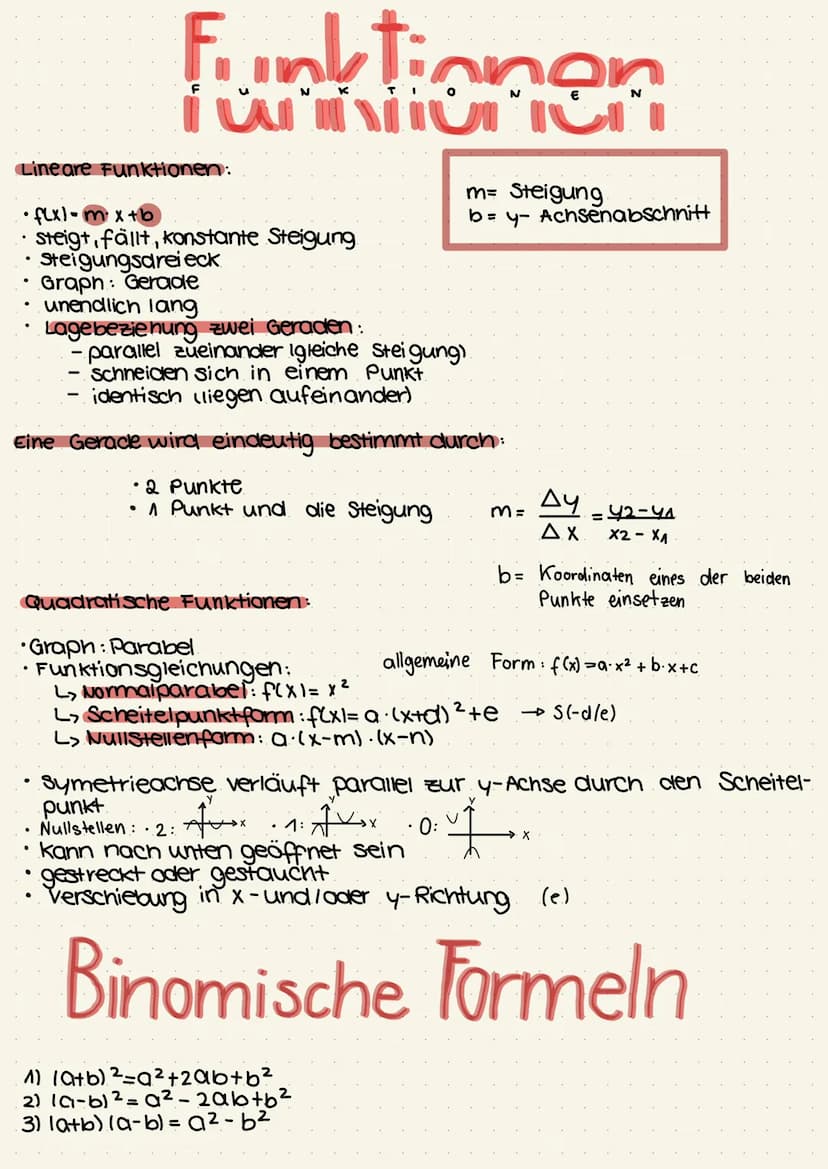 Funktionen
FUNKTIONEN
Lineare Funktionen:
m= Steigung
b= y- Achsenabschnitt
• f(x)= m· x +b
• steigt, fällt, konstante Steigung
• Steigungsdreieck
• Graph: Gerade
• unendlich lang
• Lagebeziehung zwei Geraden:
- parallel zueinander (gleiche Steigung)
- schneiden sich in einem Punkt
- identisch (liegen aufeinander)
Eine Gerade wird eindeutig bestimmt durch:
• 2 Punkte
• 1 Punkt und die Steigung
m= Δy/Δx = y2-y1/x2-x1
b= Koordinaten eines der beiden
Punkte einsetzen
Quadratische Funktionen:
• Graph: Parabel
• Funktionsgleichungen:
allgemeine Form: f(x)=a·x²+b·x+c
↳ Normalparabel: f(x)= x²
↳ Scheitelpunktform: f(x)= a·(x+d)²+e → S(-d/e)
↳ Nullstellenform: a·(x-m)·(x-n)
• Symetrieachse verläuft parallel zur y-Achse durch den Scheitel-
punkt
• Nullstellen: · 2: y x · 1: y x · 0: y x
• kann nach unten geöffnet sein
• gestreckt oder gestaucht
• Verschiebung in x-und/oder y-Richtung (e)
Binomische Formeln
1) (a+b)²=a²+2ab+b²
2) (a-b)²= a²- 2ab+b²
3) (a+b)(a-b)= a²-b²